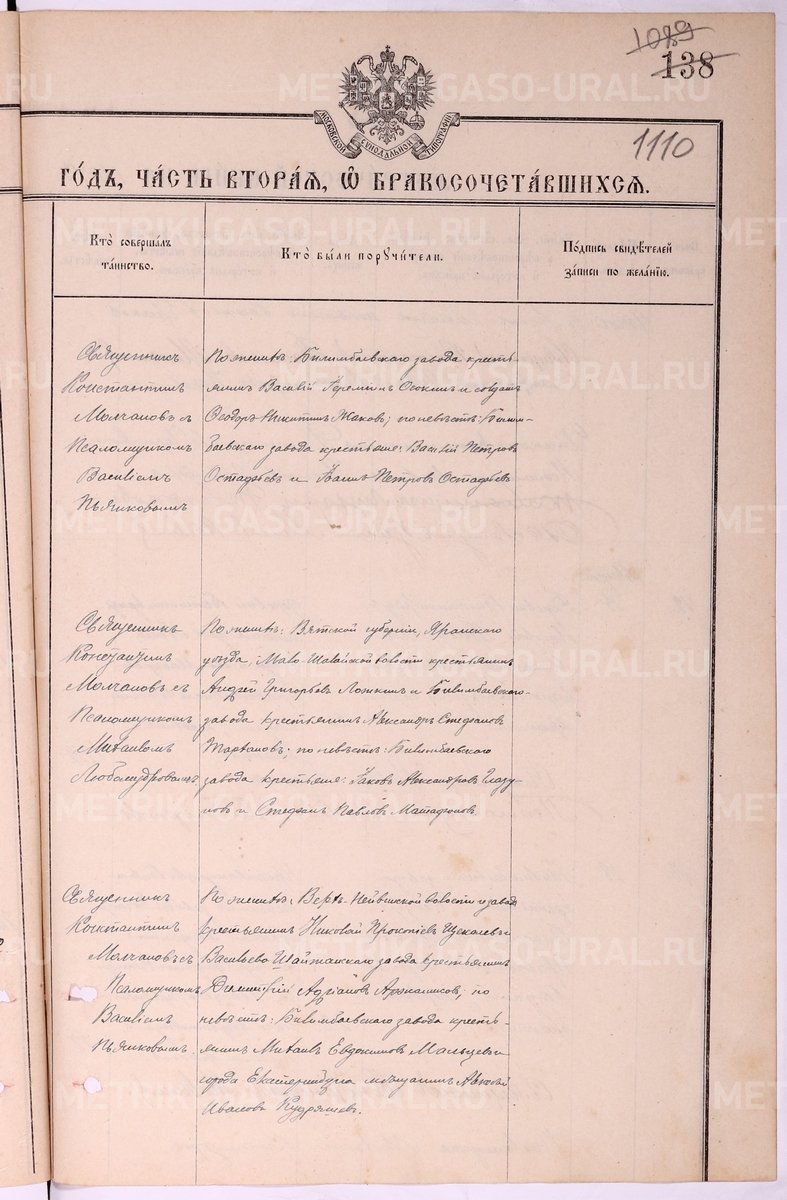 1089
138
МОСКОВСКОЙ СѴНОДАЛЬНОЙ ТИПОГРАФІИ
1110
ГО́ДЪ, ЧА́СТЬ ВТОРА́Я, Ѽ БРАКОСОЧЕТА́ВШИХСЯ.
Кто̀ соверша́лъ
та́инство.
Кто̀ бы́ли поручи́тели.
По́дпись свидѣ́телей
за́писи по жела́нію.
Священникъ
Константинъ
Молчановъ съ
Псаломщикомъ
Василіемъ
Пьянковымъ
По женихѣ: Билимбаевскаго завода кресть-
янинъ Василій Еремѣинъ Оскинъ и солдатъ
Ѳеодоръ Никитинъ Жаковъ; по невѣстѣ: Билим-
баевскаго завода крестьяне: Василій Петровъ
Остафьевъ и Іоаннъ Петровъ Остафьевъ
Священникъ
Константинъ
Молчановъ съ
Псаломщикомъ
Михаиломъ
Любомудровымъ
По женихѣ: Вятской губерніи, Яранскаго
уѣзда, Мало-Шалайской волости крестьянинъ
Андрей Григорьевъ Ложкинъ и Билимбаевскаго
завода крестьянинъ Александръ Стефановъ
; по невѣстѣ: Билимбаевскаго
завода крестьяне: Іаковъ Александровъ Глазу-
новъ и Стефанъ Павловъ Матафоновъ
Священникъ
Константинъ
Молчановъ съ
Псаломщикомъ
Василіемъ
Пьянковымъ
По женихѣ: Верхъ-Нейвинской волости и завода
крестьянинъ Николай Прокопіевъ Щекалевъ и
Васильево-Шайтанскаго завода крестьянинъ
Димитрій Адріановъ; по
невѣстѣ: Билимбаевскаго завода кресть-
янинъ Михаилъ Евдокимовъ Мальцевъ и
города Екатеринбурга мѣщанинъ Алексѣй
Ивановъ Кудряшевъ.
METRIKI.GASO-URAL.RU